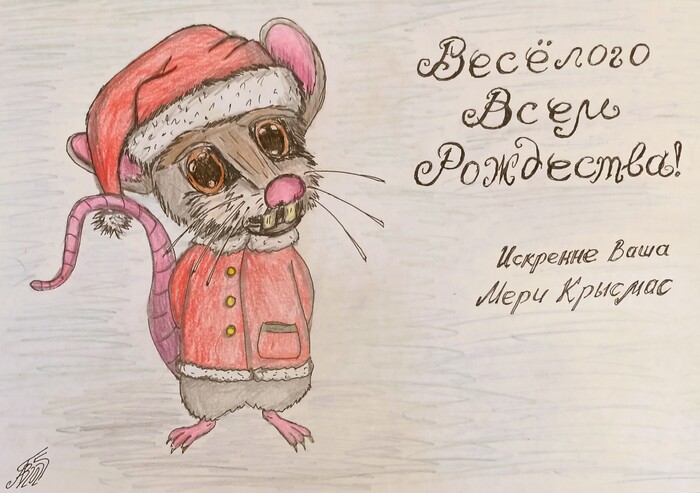 Весёлого
Всем
Рождества!
Искренне Ваша
Мери Крысмас